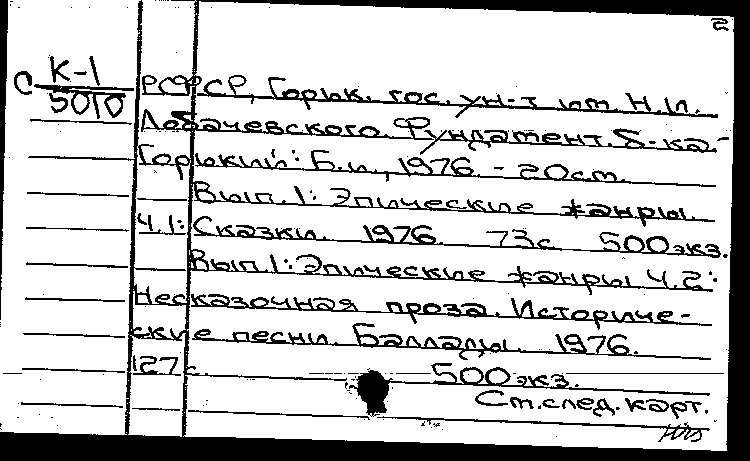 2
С К-1
5010
РСФСР, Горьк. гос. ун-т им. Н.И.
Лобачевского. Фундамент. б-ка-
Горький: Б.и., 1976. - 20см.
Вып.1: Эпические жанры.
Ч.1: Сказки. 1976. 73с 500экз.
Вып.1: Эпические жанры Ч.2:
Несказочная проза. Историче-
ские песни. Баллады. 1976.
127с. 500экз.
См.след.карт.